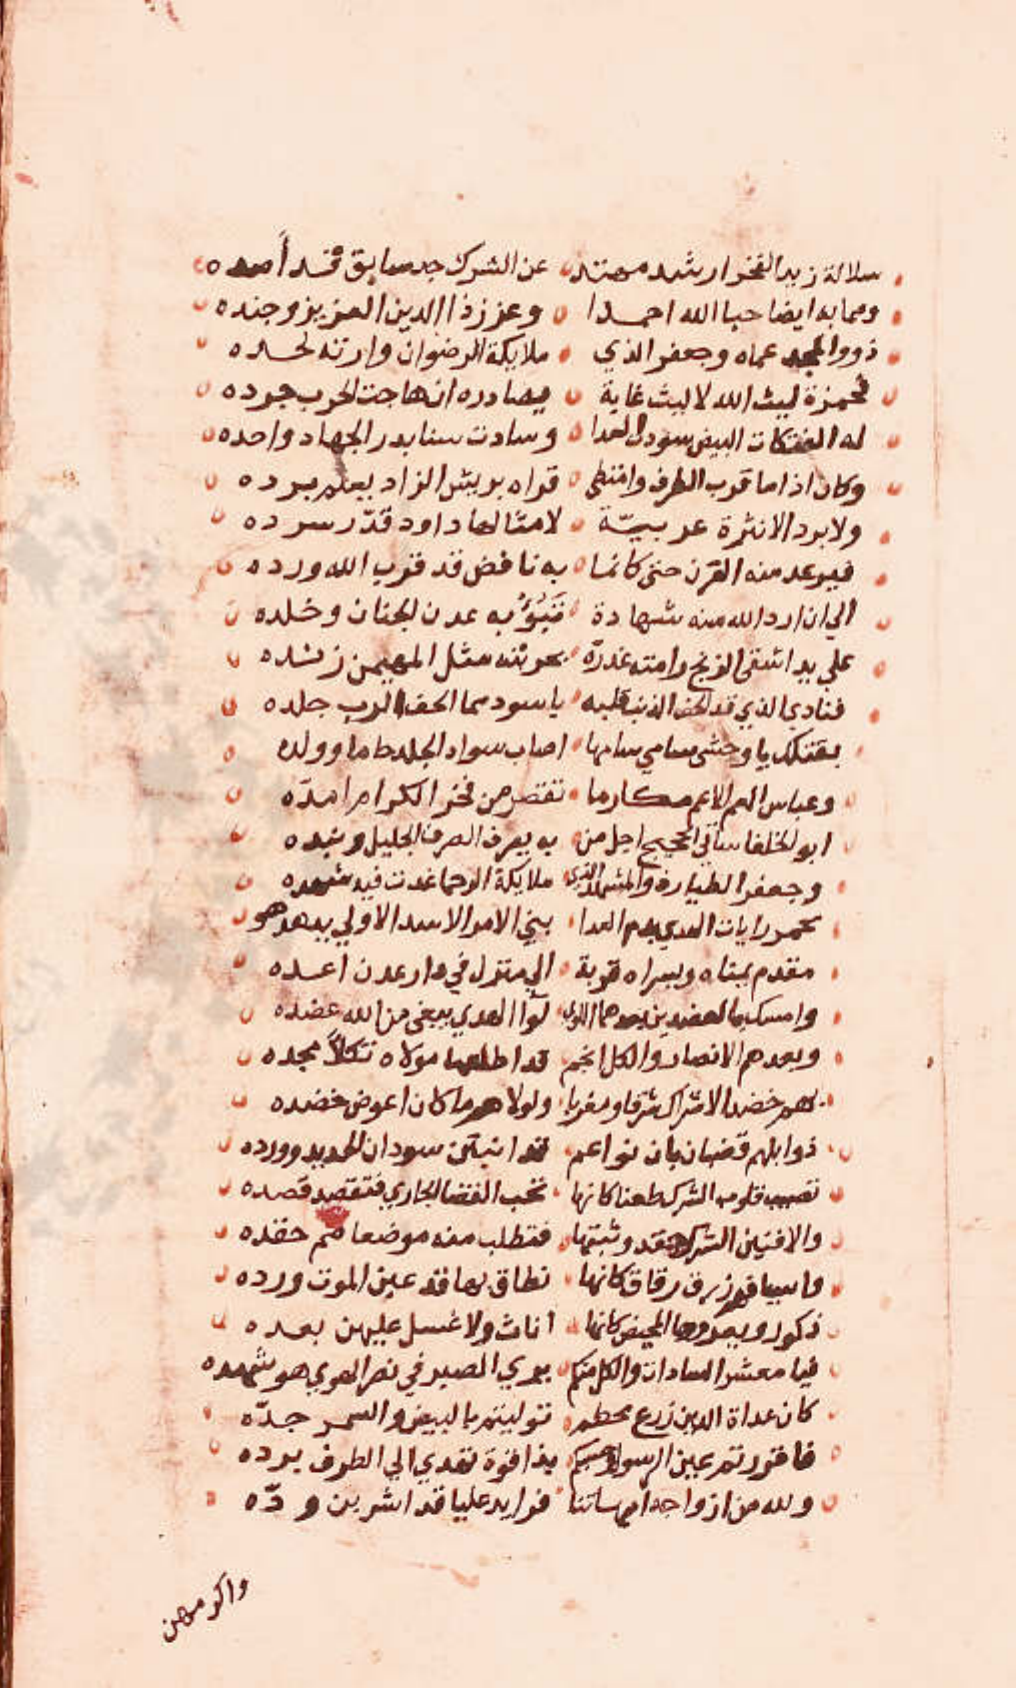 سلالة زيد الفخر ارشد مهتد عن الشرك جد سابق
ومما به ايضا حبا الله احمدا وعزز ذا الدين العزيز وجنده
ذووا المجد عماه وجعفر الذي ملايكة الرضوان وارته لحده
فحمزة ليث الله لا ليث غاية يصادره ان هاجت الحرب جرده
له الفتكات البيض سودن العدا وسادت سنا بدر الجهاد واحده
وكان اذا ما قرب الطرف وامتطى قراه بريش الزاد يعلم برده
ولا برد الا نثرة عربيّة لامثالها داود قدّر سرده
فيرعد منه القرن حتى كانما به نافض قد قرب الله ورده
الي ان اراد الله منه شهادة تَبَوَّؤُ به عدن الجنان وخلده
على يد اشقى الزنج رامته غدرة بحربته مثل المهيمن زنده
فنادي الذي قد الذنب قلبه ياسود مما الحف الرب جلده
بقتلك يا وحشي سامي سامها اصاب سواد الجلد حاما وولده
وعباس الهم الاعم مكارما تقتصر من فخر الكرام امدّه
ابو الخلفا ساقي الحجيج اجل من به يعرف الصرف الجليل ونده
وجعفر الطيار ذو المشهد الذي ملايكة الرحما غدت فيه شهده
بحمر رايات الهدي بدم العدا بني الاصر الاسد الاولي
مقدم يمناه ويسراه قربة الي منزل في دار عدن اعده
وامسك بالعضدين بعدهما اللوى لوآ الهدي يبغي من الله عضده
وبعدهم الانصار والكل انجم قد اطلعها مولاه تكلأ مجده
بهم خضد الاشراك شرقا ومغربا ولولا هم ما كان اعوض خضده
ذوابلهم قضبان بان نواعم قد انبتن سودان الحديد وورده
تصيب قلوب الشرك طعنا كانها نخب القضا الجاري فتقصد قصده
والافتين الشرك وثبتها فتطلب منه موضعا ضم حقده
واسيافهم زرق رقاق كانها نطاق بها قد عين الموت ورده
ذكور ويعروها المحيض كانها اناث ولا غسل عليهن بعده
فيا معشر السادات والكل منكم يري الصبر في نصر الهدي هو شهده
كان عداة الدين زرع محطم توليتم بالبيض والسمر جدّه
فاقررتم عين الرسول وحبكم بذا قرة تهدي الي الطرف برده
ولله من ازواجه امهاتنا فرايد عليا قد اشربن ودّه
واكرمهن